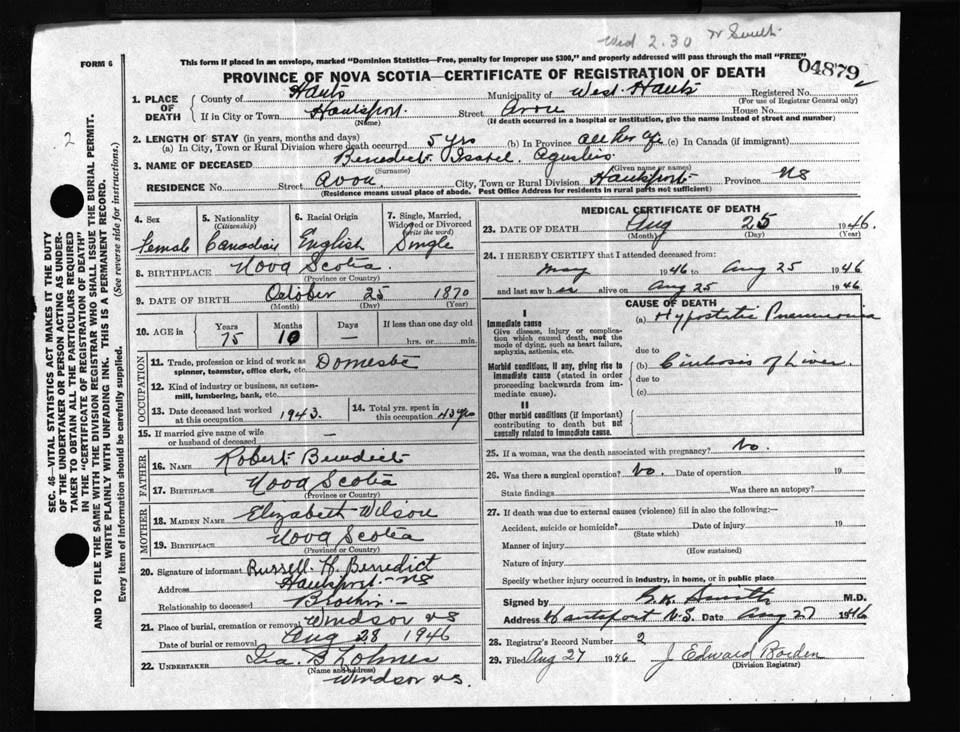 Wed 2.30 W Smith
FORM 6
This form if placed in an envelope, marked "Dominion Statistics—Free, penalty for improper use $300," and properly addressed will pass through the mail "FREE"
04879
2
PROVINCE OF NOVA SCOTIA—CERTIFICATE OF REGISTRATION OF DEATH
1. PLACE OF DEATH
County of Hants Municipality of West Hants Registered No.
(For use of Registrar General only)
If in City or Town Hantsport Street Avon House No.
(Name) (If death occurred in a hospital or institution, give the name instead of street and number)
2. LENGTH OF STAY (in years, months and days)
(a) In City, Town or Rural Division where death occurred 5 yrs (b) In Province all her life (c) In Canada (if immigrant)
3. NAME OF DECEASED Benedict Isabel
(Surname) (Given name or names)
RESIDENCE No. Street Avon City, Town or Rural Division Hantsport Province NS
(Residence means usual place of abode. Post Office Address for residents in rural parts not sufficient)
4. Sex Female
5. Nationality (Citizenship) Canadian
6. Racial Origin English
7. Single, Married, Widowed or Divorced (write the word) Single
8. BIRTHPLACE Nova Scotia
(Province or Country)
9. DATE OF BIRTH October 25 1870
(Month) (Day) (Year)
10. AGE in Years 75 Months 10 Days — If less than one day old hrs. or min.
OCCUPATION
11. Trade, profession or kind of work as spinner, teamster, office clerk, etc. Domestic
12. Kind of industry or business, as cotton-mill, lumbering, bank, etc.
13. Date deceased last worked at this occupation 1943.
14. Total yrs. spent in this occupation 43 yrs
15. If married give name of wife or husband of deceased —
FATHER
16. NAME Robert Benedict
17. BIRTHPLACE Nova Scotia
(Province or Country)
MOTHER
18. MAIDEN NAME Elizabeth Wilson
19. BIRTHPLACE Nova Scotia
(Province or Country)
20. Signature of informant Russell H. Benedict
Address Hantsport - NS
Relationship to deceased Brother -
21. Place of burial, cremation or removal Windsor NS
Date of burial or removal Aug 28 1946
22. UNDERTAKER
(Name and address)
Windsor NS.
MEDICAL CERTIFICATE OF DEATH
23. DATE OF DEATH Aug 25 1946.
(Month) (Day) (Year)
24. I HEREBY CERTIFY that I attended deceased from:
May 1946 to Aug 25 1946
and last saw her alive on Aug 25 1946
CAUSE OF DEATH
I
Immediate cause
Give disease, injury or complication which caused death, not the mode of dying, such as heart failure, asphyxia, asthenia, etc.
(a) Hypostatic Pneumonia
due to
Morbid conditions, if any, giving rise to immediate cause (stated in order proceeding backwards from immediate cause).
(b) Cirrhosis of Liver.
due to
(c)
II
Other morbid conditions (if important) contributing to death but not causally related to immediate cause.
25. If a woman, was the death associated with pregnancy? No.
26. Was there a surgical operation? No. Date of operation 19
State findings Was there an autopsy?
27. If death was due to external causes (violence) fill in also the following:—
Accident, suicide or homicide? Date of injury 19
(State which)
Manner of injury
(How sustained)
Nature of injury
Specify whether injury occurred in industry, in home, or in public place
Signed by B.K. Smith M.D.
Address Hantsport N.S. Date Aug 27 1946
28. Registrar's Record Number 2
29. Filed Aug 27 1946 J Edward Borden
(Division Registrar)
2
SEC. 46—VITAL STATISTICS ACT MAKES IT THE DUTY
OF THE UNDERTAKER OR PERSON ACTING AS UNDER-
TAKER TO OBTAIN ALL THE PARTICULARS REQUIRED
IN THE "CERTIFICATE OF REGISTRATION OF DEATH"
AND TO FILE THE SAME WITH THE DIVISION REGISTRAR WHO SHALL ISSUE THE BURIAL PERMIT.
WRITE PLAINLY WITH UNFADING INK. THIS IS A PERMANENT RECORD.
Every item of information should be carefully supplied. (See reverse side for instructions.)